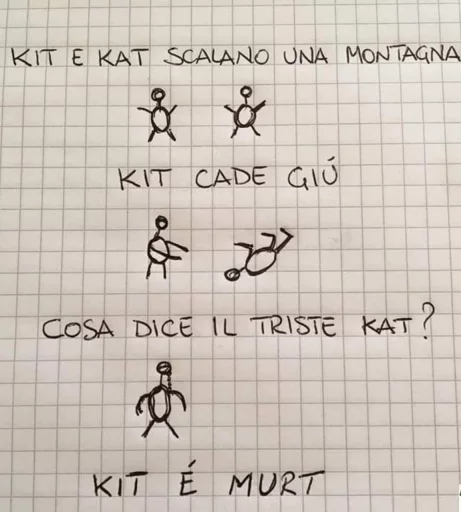 KIT E KAT SCALANO UNA MONTAGNA
KIT CADE GIÚ
COSA DICE IL TRISTE KAT?
KIT É MURT